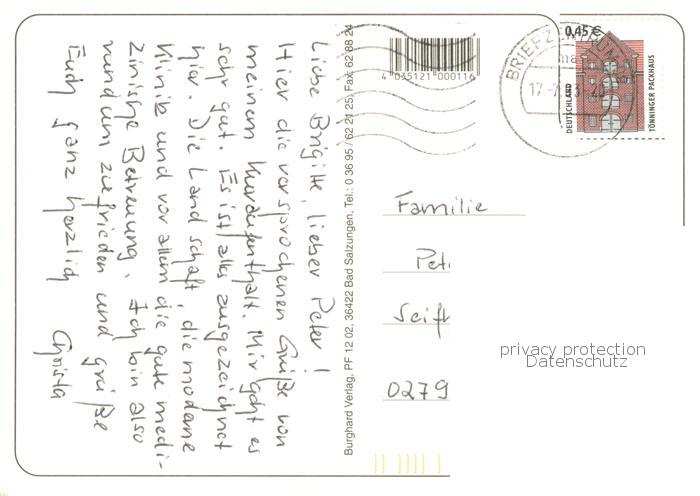 Liebe Brigitte, lieber Peter!
Hier die versprochenen Grüße von
meinem Kuraufenthalt. Mir geht es
sehr gut. Es ist alles ausgezeichnet
hier. Die Landschaft, die moderne
Klinik und vor allem die gute medi-
zinische Betreuung. Ich bin also
rundum zufrieden und grüße
Euch ganz herzlich Christa
Burghard Verlag, PF 12 02, 36422 Bad Salzungen, Tel.: 0 36 95 / 62 21 25, Fax: 62 88 24
4 035121 000116
BRIEFZENTRUM
17.-7
0,45 €
DEUTSCHLAND
TÖNNINGER PACKHAUS
Familie
Pet
Seifh
0279
privacy protection
Datenschutz